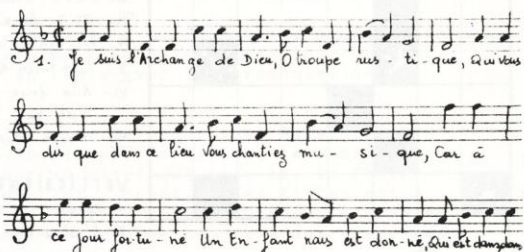 1. Je suis l'Archange de Dieu, O troupe rus - ti - que, Qui vous
dis que dans ce lieu Vous chantiez mu - si - que, Car à
ce jour for-tu - né Un En - fant nous est don - né, Qui est dans